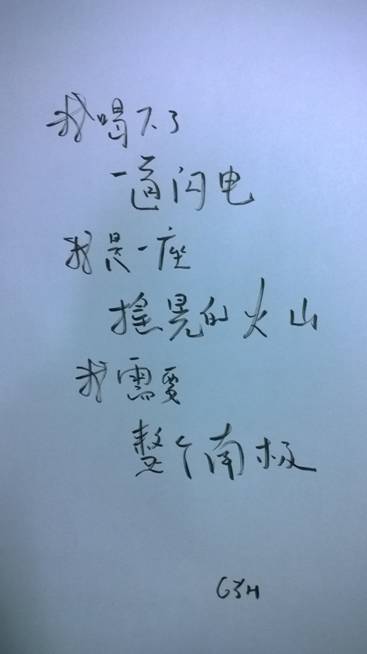 我喝不了
一道闪电
我是一座
摇晃的火山
我需要
整个南极